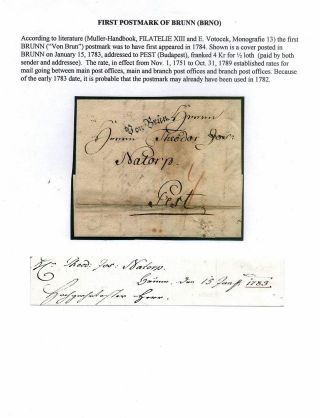 FIRST POSTMARK OF BRUNN (BRNO)
According to literature (Muller-Handbook, FILATELIE XIII and E. Votocek, Monografie 13) the first
BRUNN ("Von Brun") postmark was to have first appeared in 1784. Shown is a cover posted in
BRUNN on January 15, 1783, addressed to PEST (Budapest), franked 4 Kr for ½ loth (paid by both
sender and addressee). The rate, in effect from Nov. 1, 1751 to Oct. 31, 1789 established rates for
mail going between main post offices, main and branch post offices and branch post offices. Because
of the early 1783 date, it is probable that the postmark may already have been used in 1782.
Von Brün Herrn
Herrn Theodor Jos:
Natorp.
Pest
Theod: Jos: Natorp.
Brünn, den 15 Jan 1783.
Herr.